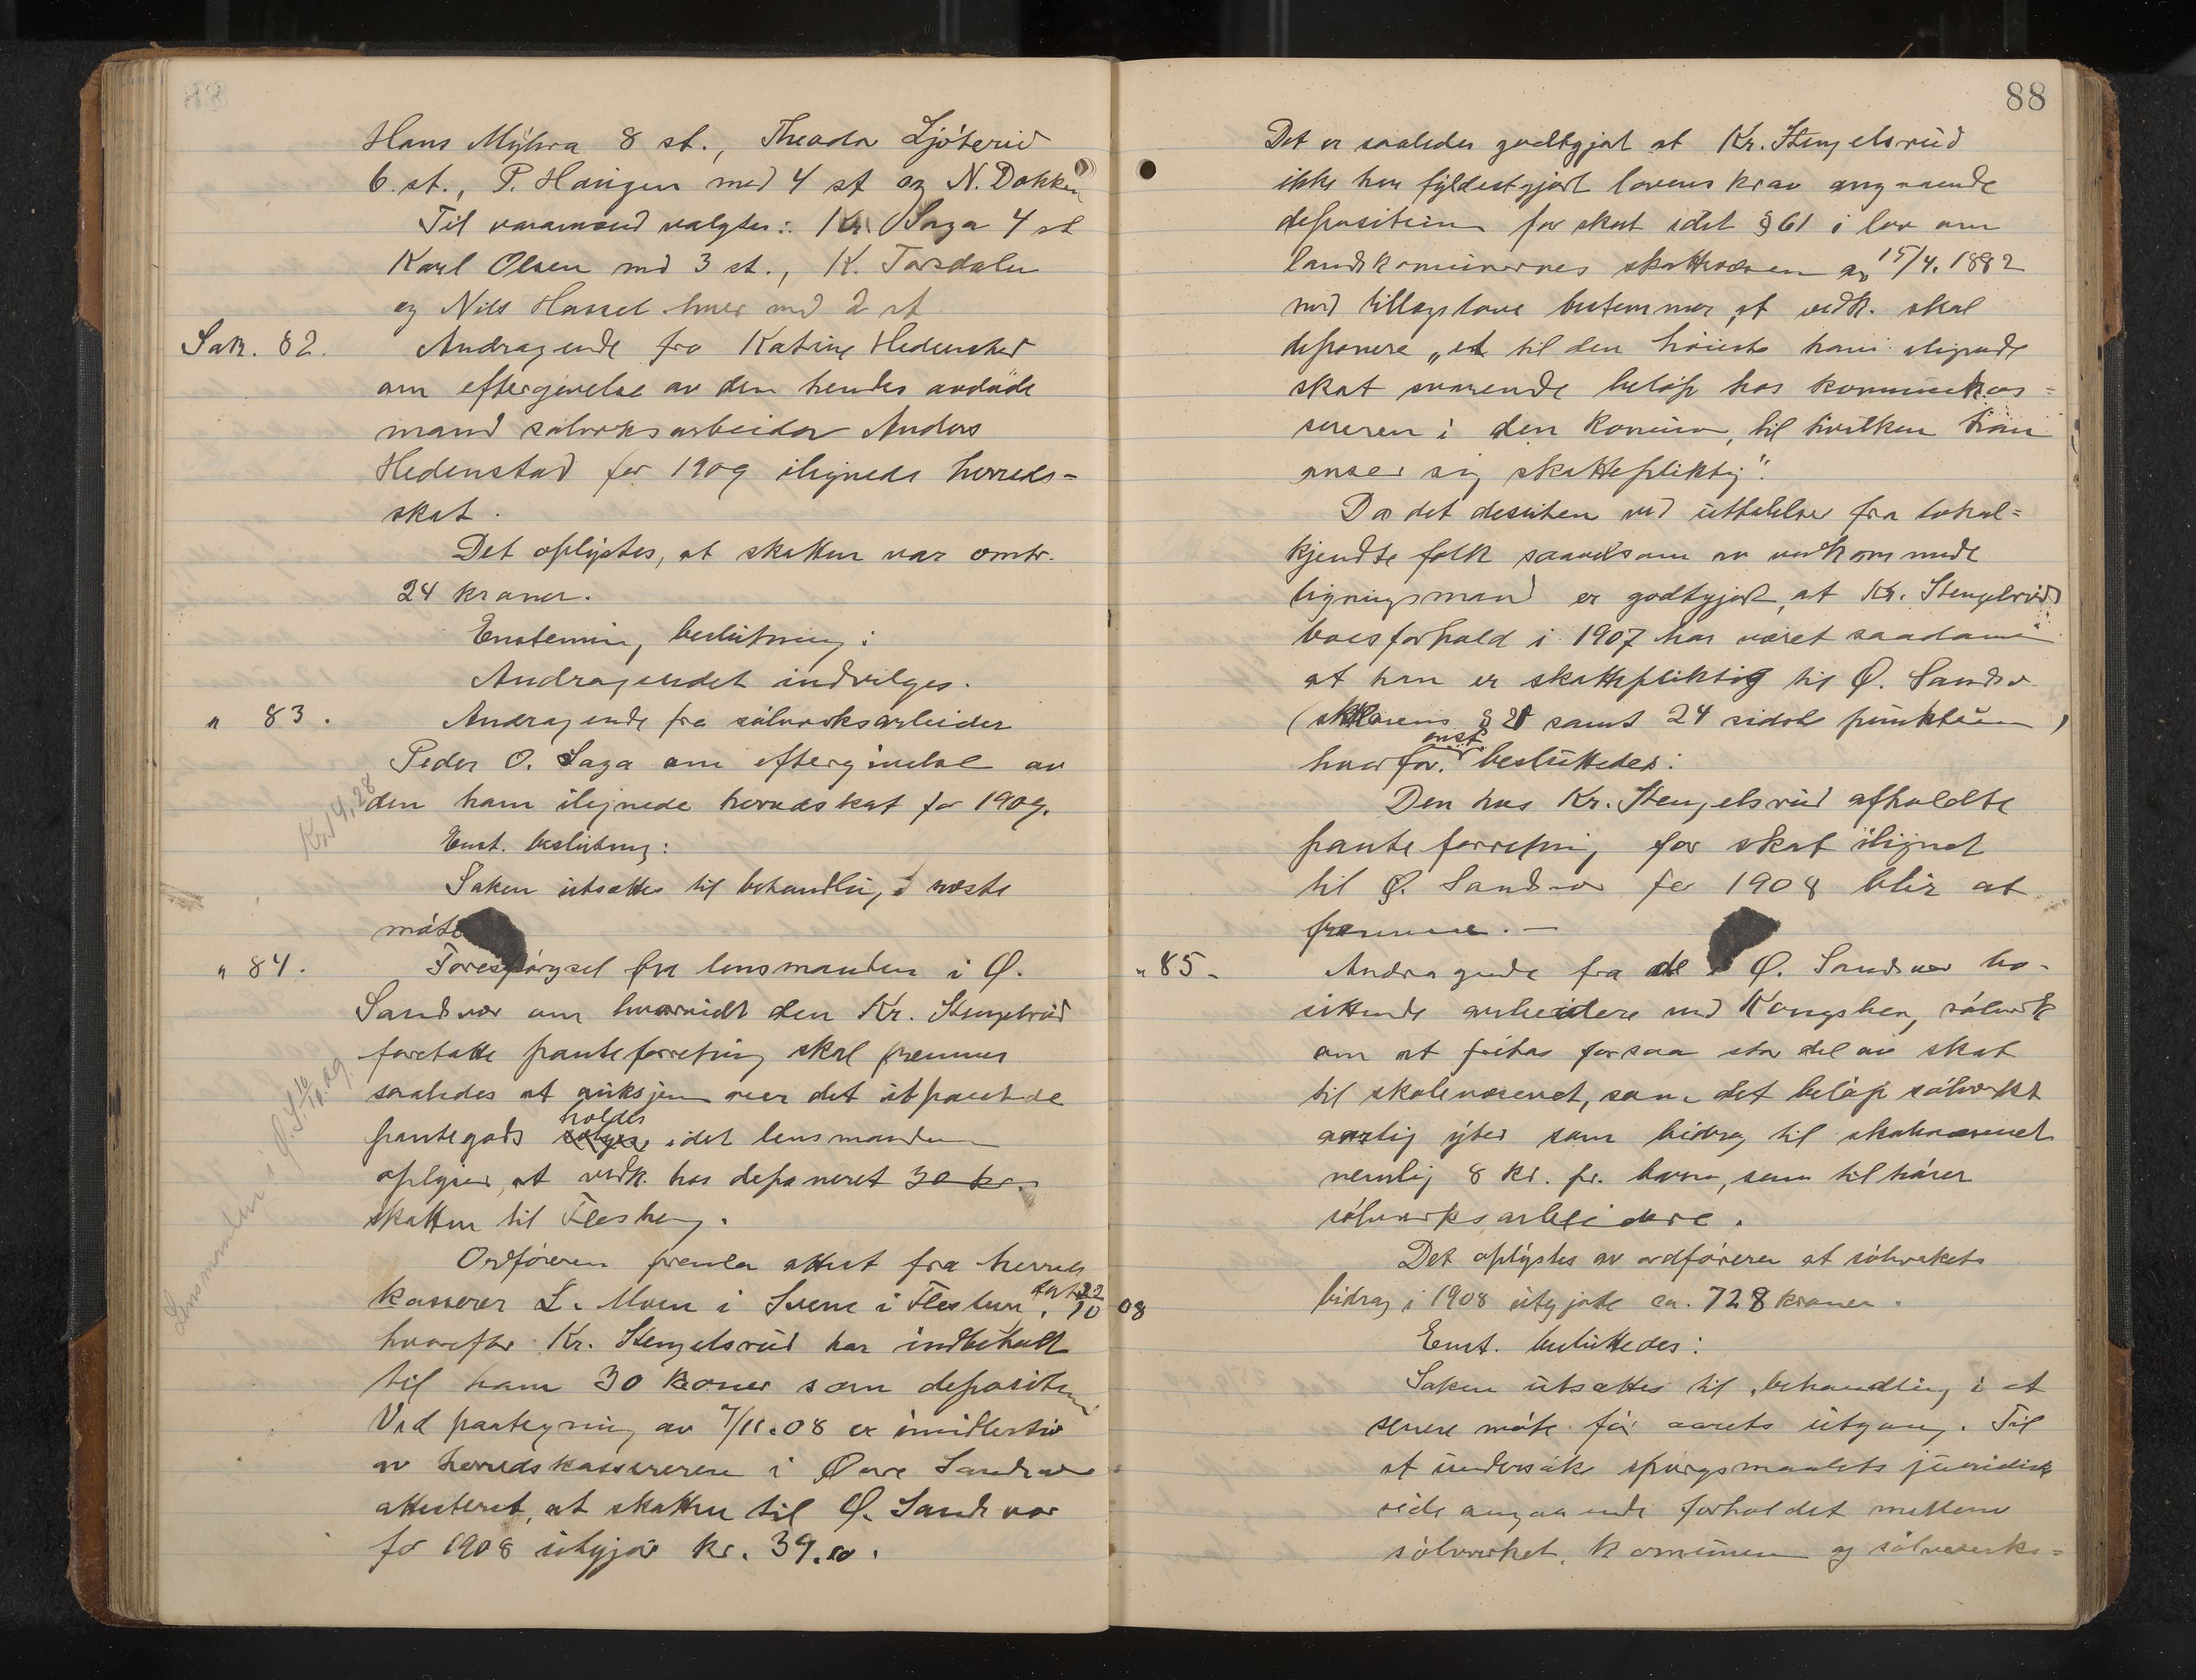 88
Hans Myhra 8 st., Theodor Ljøterud
6 st., P. Haugen med 4 st og N. Dokken
Til varamænd valgtes: Kr. Saga 4 st
Karl Olsen med 3 st., K. Torsdalen
og Nils Hassel hver med 2 st
Sak. 82. Andragende fra Katrine Hedenstad
om eftergivelse av den hendes avdøde
mand sølvverksarbeider Anders
Hedenstad for 1909 ilignede herreds-
skat.
Det oplystes, at skatten var omtr.
24 kroner.
Enstemmig beslutning:
Andragendet indvilges.
" 83. Andragende fra sølvverksarbeider
Peder O. Saga om eftergivelse av
den ham ilignede herredsskat for 1909.
Kr. 14,28
Enst. beslutning:
Saken utsættes til behandling i næste
møte
" 84. Forespørgsel fra lensmanden i Ø.
Sandsvær om hvorvidt den Kr. Stengelsrud
foretatte panteforretning skal fremmes
saaledes at auksjon over det utpantede
pantegods holdes idet lensmanden
oplyser, at vedk. har deponeret 30 kr.
skatten til Flesberg.
Lensmanden i Ø. S. 16/10.09.
Ordføreren fremla attest fra herreds
kasserer L. Moen i Svene i Flesberg, dat. 22/10 08
hvorefter Kr. Stengelsrud har indbetalt
til ham 30 kroner som depositum
Ved paategning av 7/11.08 er imidlertid
av herredskassereren i Øvre Sandsvær
attesteret, at skatten til Ø. Sandsvær
for 1908 utgjør kr. 39.10.
88
Det er saaledes godtgjort at Kr. Stengelsrud
ikke har fyldestgjort lovens krav angaaende
depositum for skat idet § 61 i lov om
landskommunernes skattevæsen av 15/4. 1882
med tillægslove bestemmer, at vedk. skal
deponere „et til den høieste ham ilignede
skat svarende beløp hos kommunekas=
sereren i den kommune, til hvilken han
anser sig skattepliktig".
Da det desuten ved uttalelser fra lokal=
kjendte folk saavelsom av vedkommende
ligningsmænd er godtgjort, at Kr. Stengelsruds
boesforhold i 1907 har været saadanne
at han er skattepliktig til Ø. Sandsv.
(skattelovens § 21 samt 24 sidste punktum)
hvorfor enst. besluttedes:
Den hos Kr. Stengelsrud afholdte
panteforretning for skat ilignet
til Ø. Sandsvær for 1908 blir at
fremme. —
" 85. Andragende fra de i Ø. Sandsvær bo-
sittende arbeidere ved Kongsberg sølvverk
om at fritas for saa stor del av skat
til skolevæsenet, som det beløp sølvverket
aarlig yter som bidrag til skolevæsenet
nemlig 8 kr. pr. barn, som tilhører
sølvverksarbeidere.
Det oplystes av ordføreren at sølvverkets
bidrag i 1908 utgjorde ca. 728 kroner.
Enst. besluttedes:
Saken utsættes til behandling i et
senere møte før aarets utgang. Til
at undersøke spørgsmaalets juridiske
side angaaende forholdet mellem
sølvverket, kommunen og sølvverks=